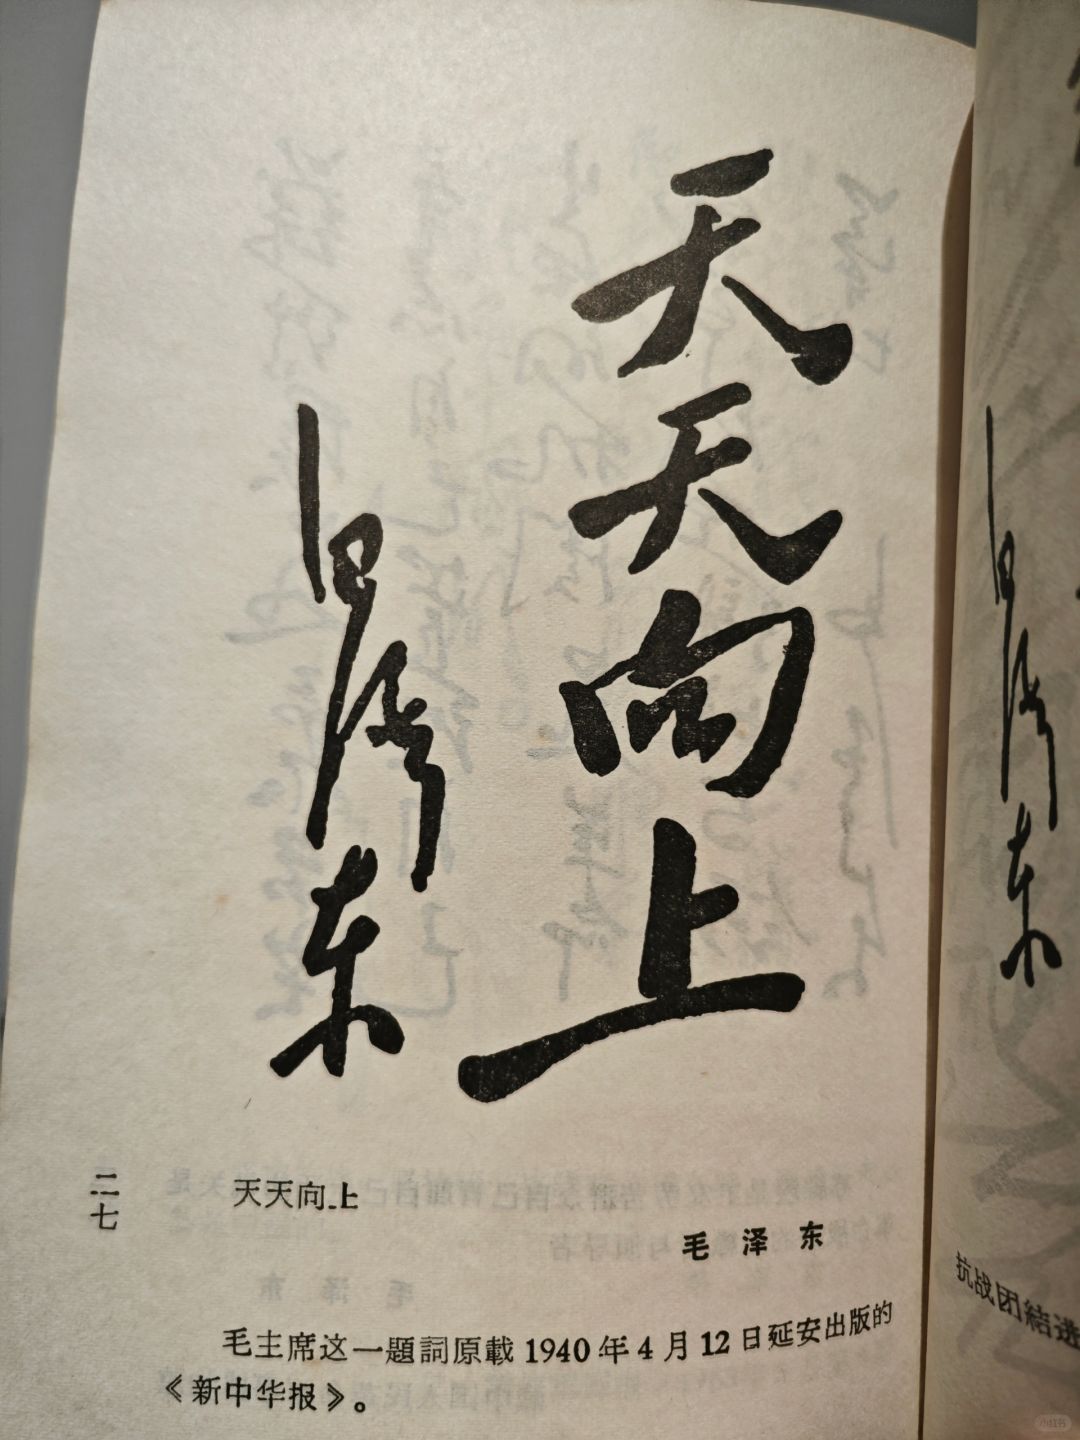 天天向上
毛泽东
天天向上
毛泽东
毛主席这一題詞原載1940年4月12日延安出版的
《新中华报》。
二七
泽东
抗战团結进
小红书